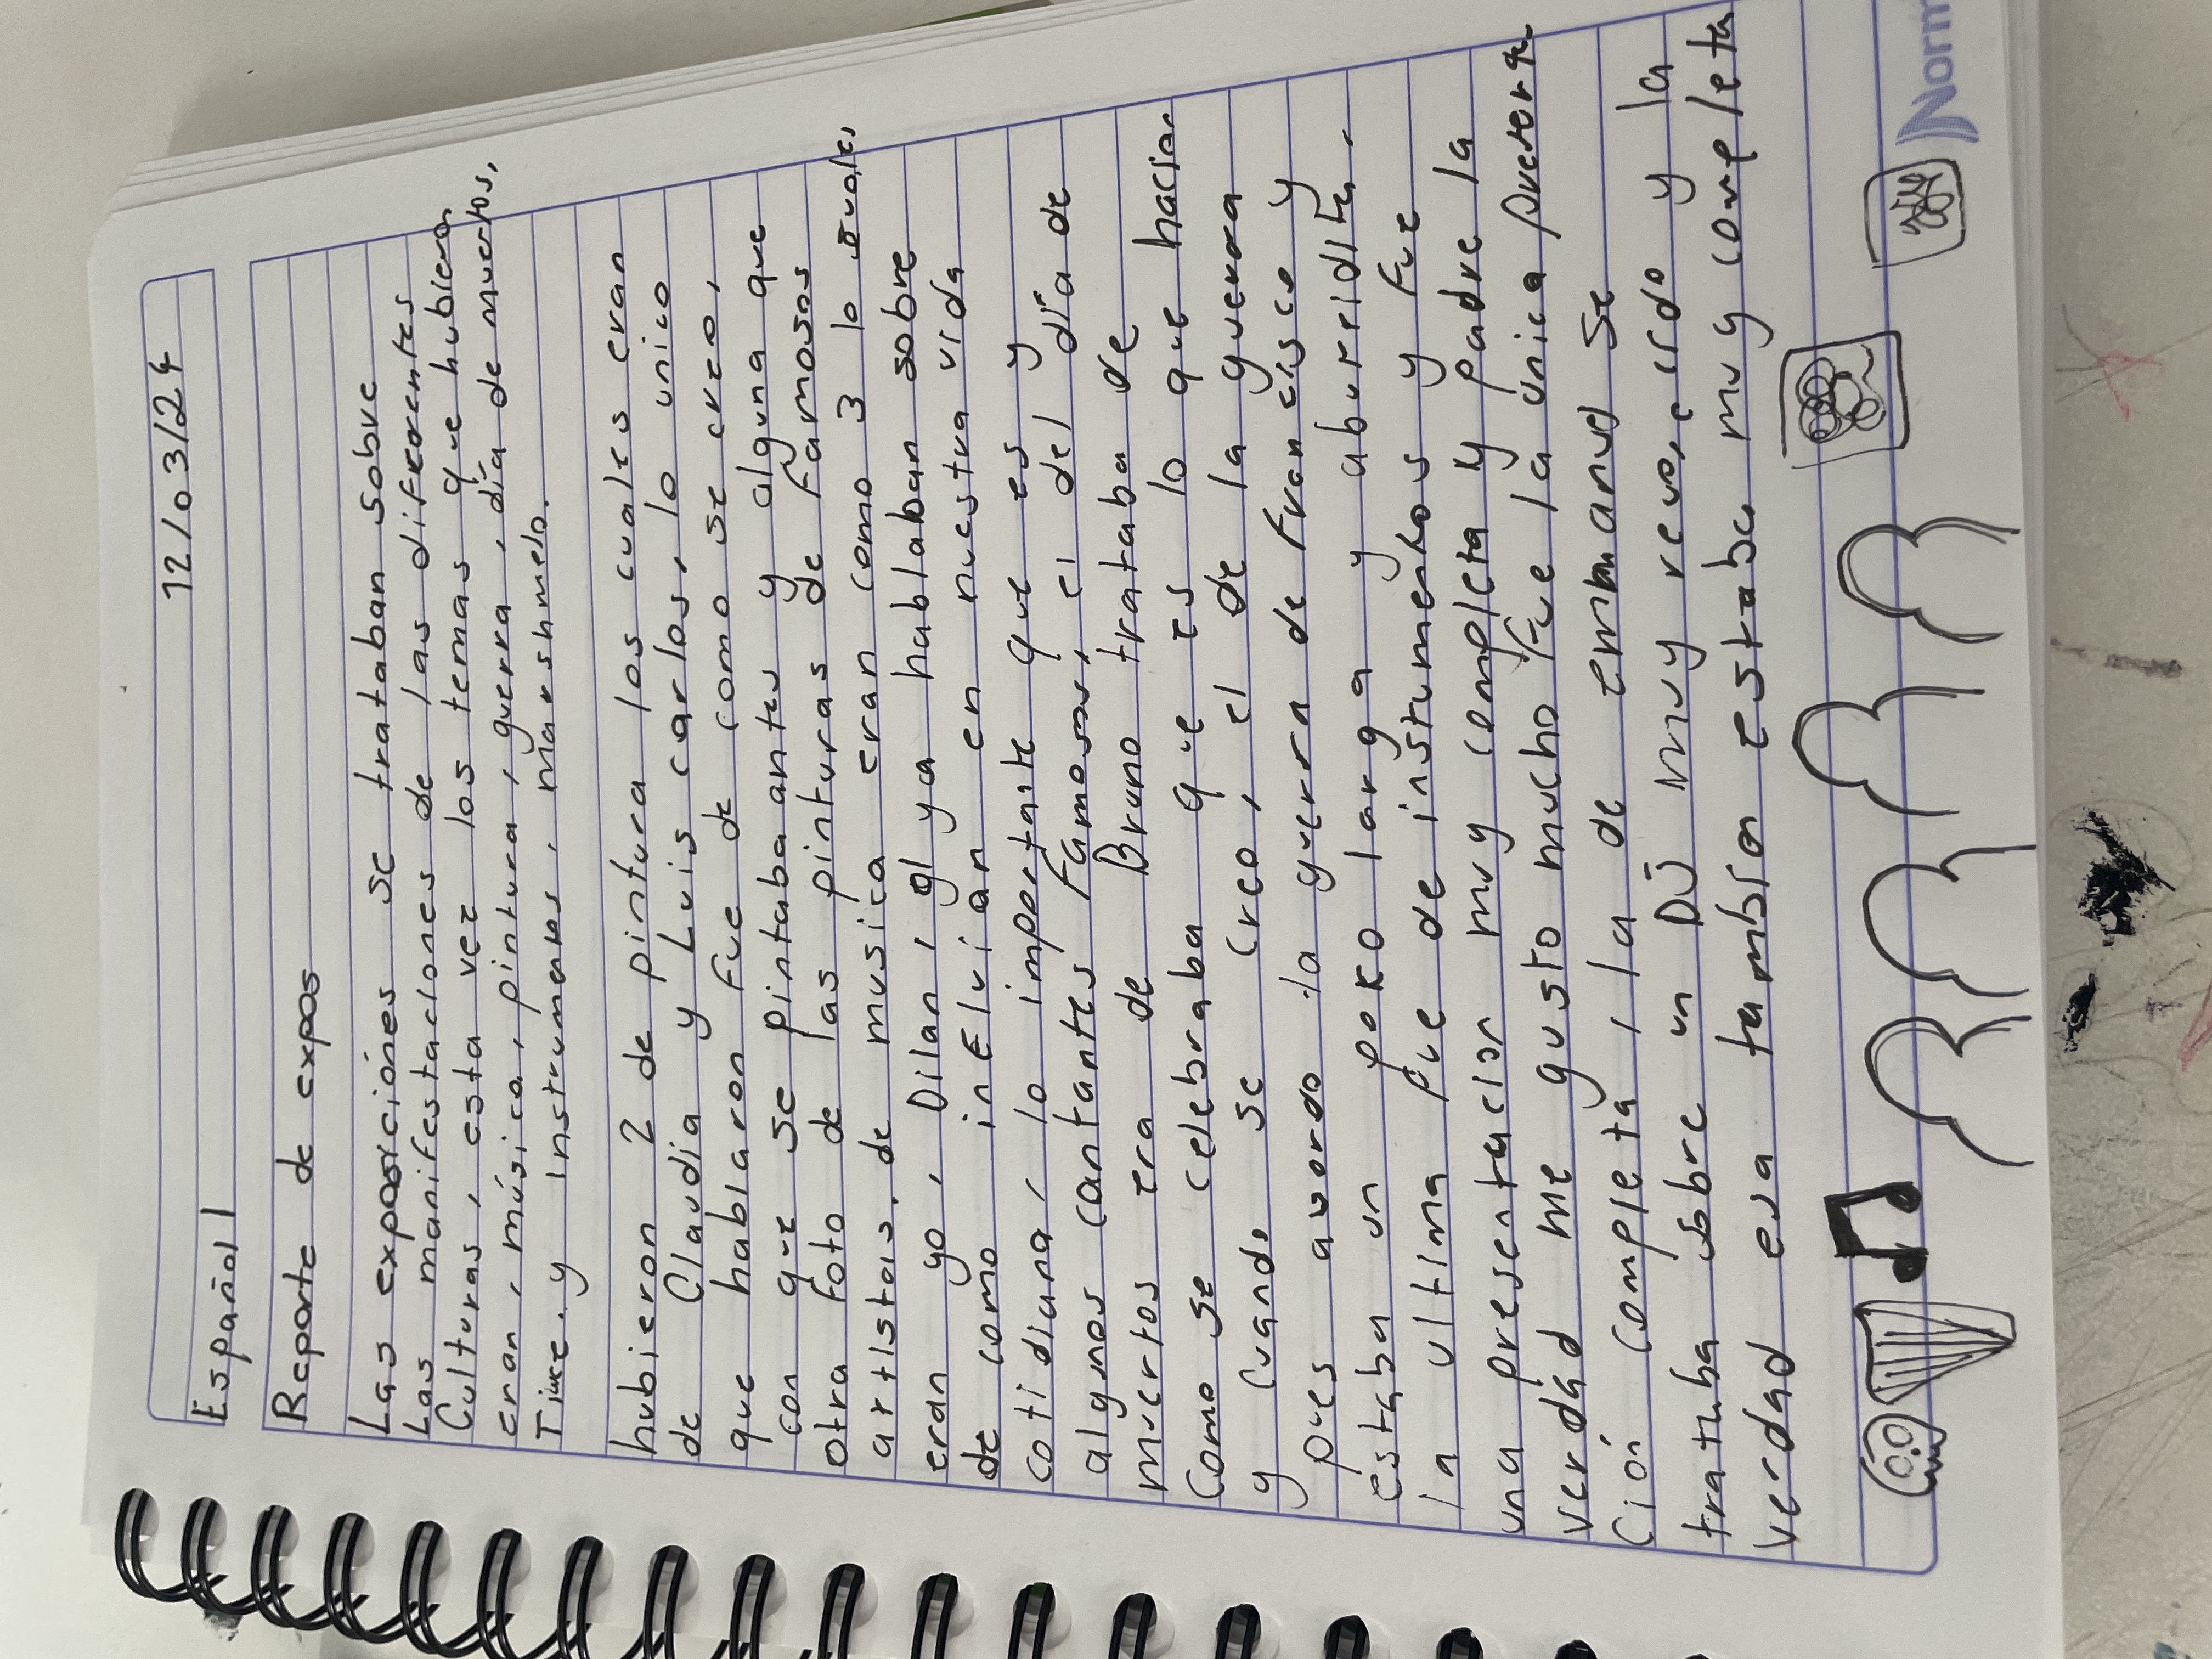 12/03/24
Español
Reporte de expos
Las exposiciónes se trataban sobre
Las manifestaciones de las diferentes
Culturas, esta vez los temas que hubieron
eran, música, pintura, guerra, día de muertos,
Time. y instrumentos, marshmelo.
hubieron 2 de pintura los cuales eran
de Claudia y Luis carlos, lo unico
que hablaron fue de como se creo,
con que se pintaba antes y alguna que
otra foto de las pinturas de famosos
artistas. de musica eran como 3 lo cuales
eran yo, Dilan, y ya hablaban sobre
de como influian en nuestra vida
cotidiana, lo importante que es y
algunos cantantes famosos, el del día de
muertos era de Bruno trataba de
Como se celebraba que es lo que hacian
y cuando se creo, el de la guerra
pues avordo la guerra de Francisco y
estaba un poko larga y aburridita.
la ultima fue de instumentos y fue
una presentacion muy completa y padre la
verdad me gusto mucho fue la unica presenta
ción completa, la de emmanuel se
trataba sobre un DJ muy reconocido y la
verdad esa tambien estaba muy completa
Norm